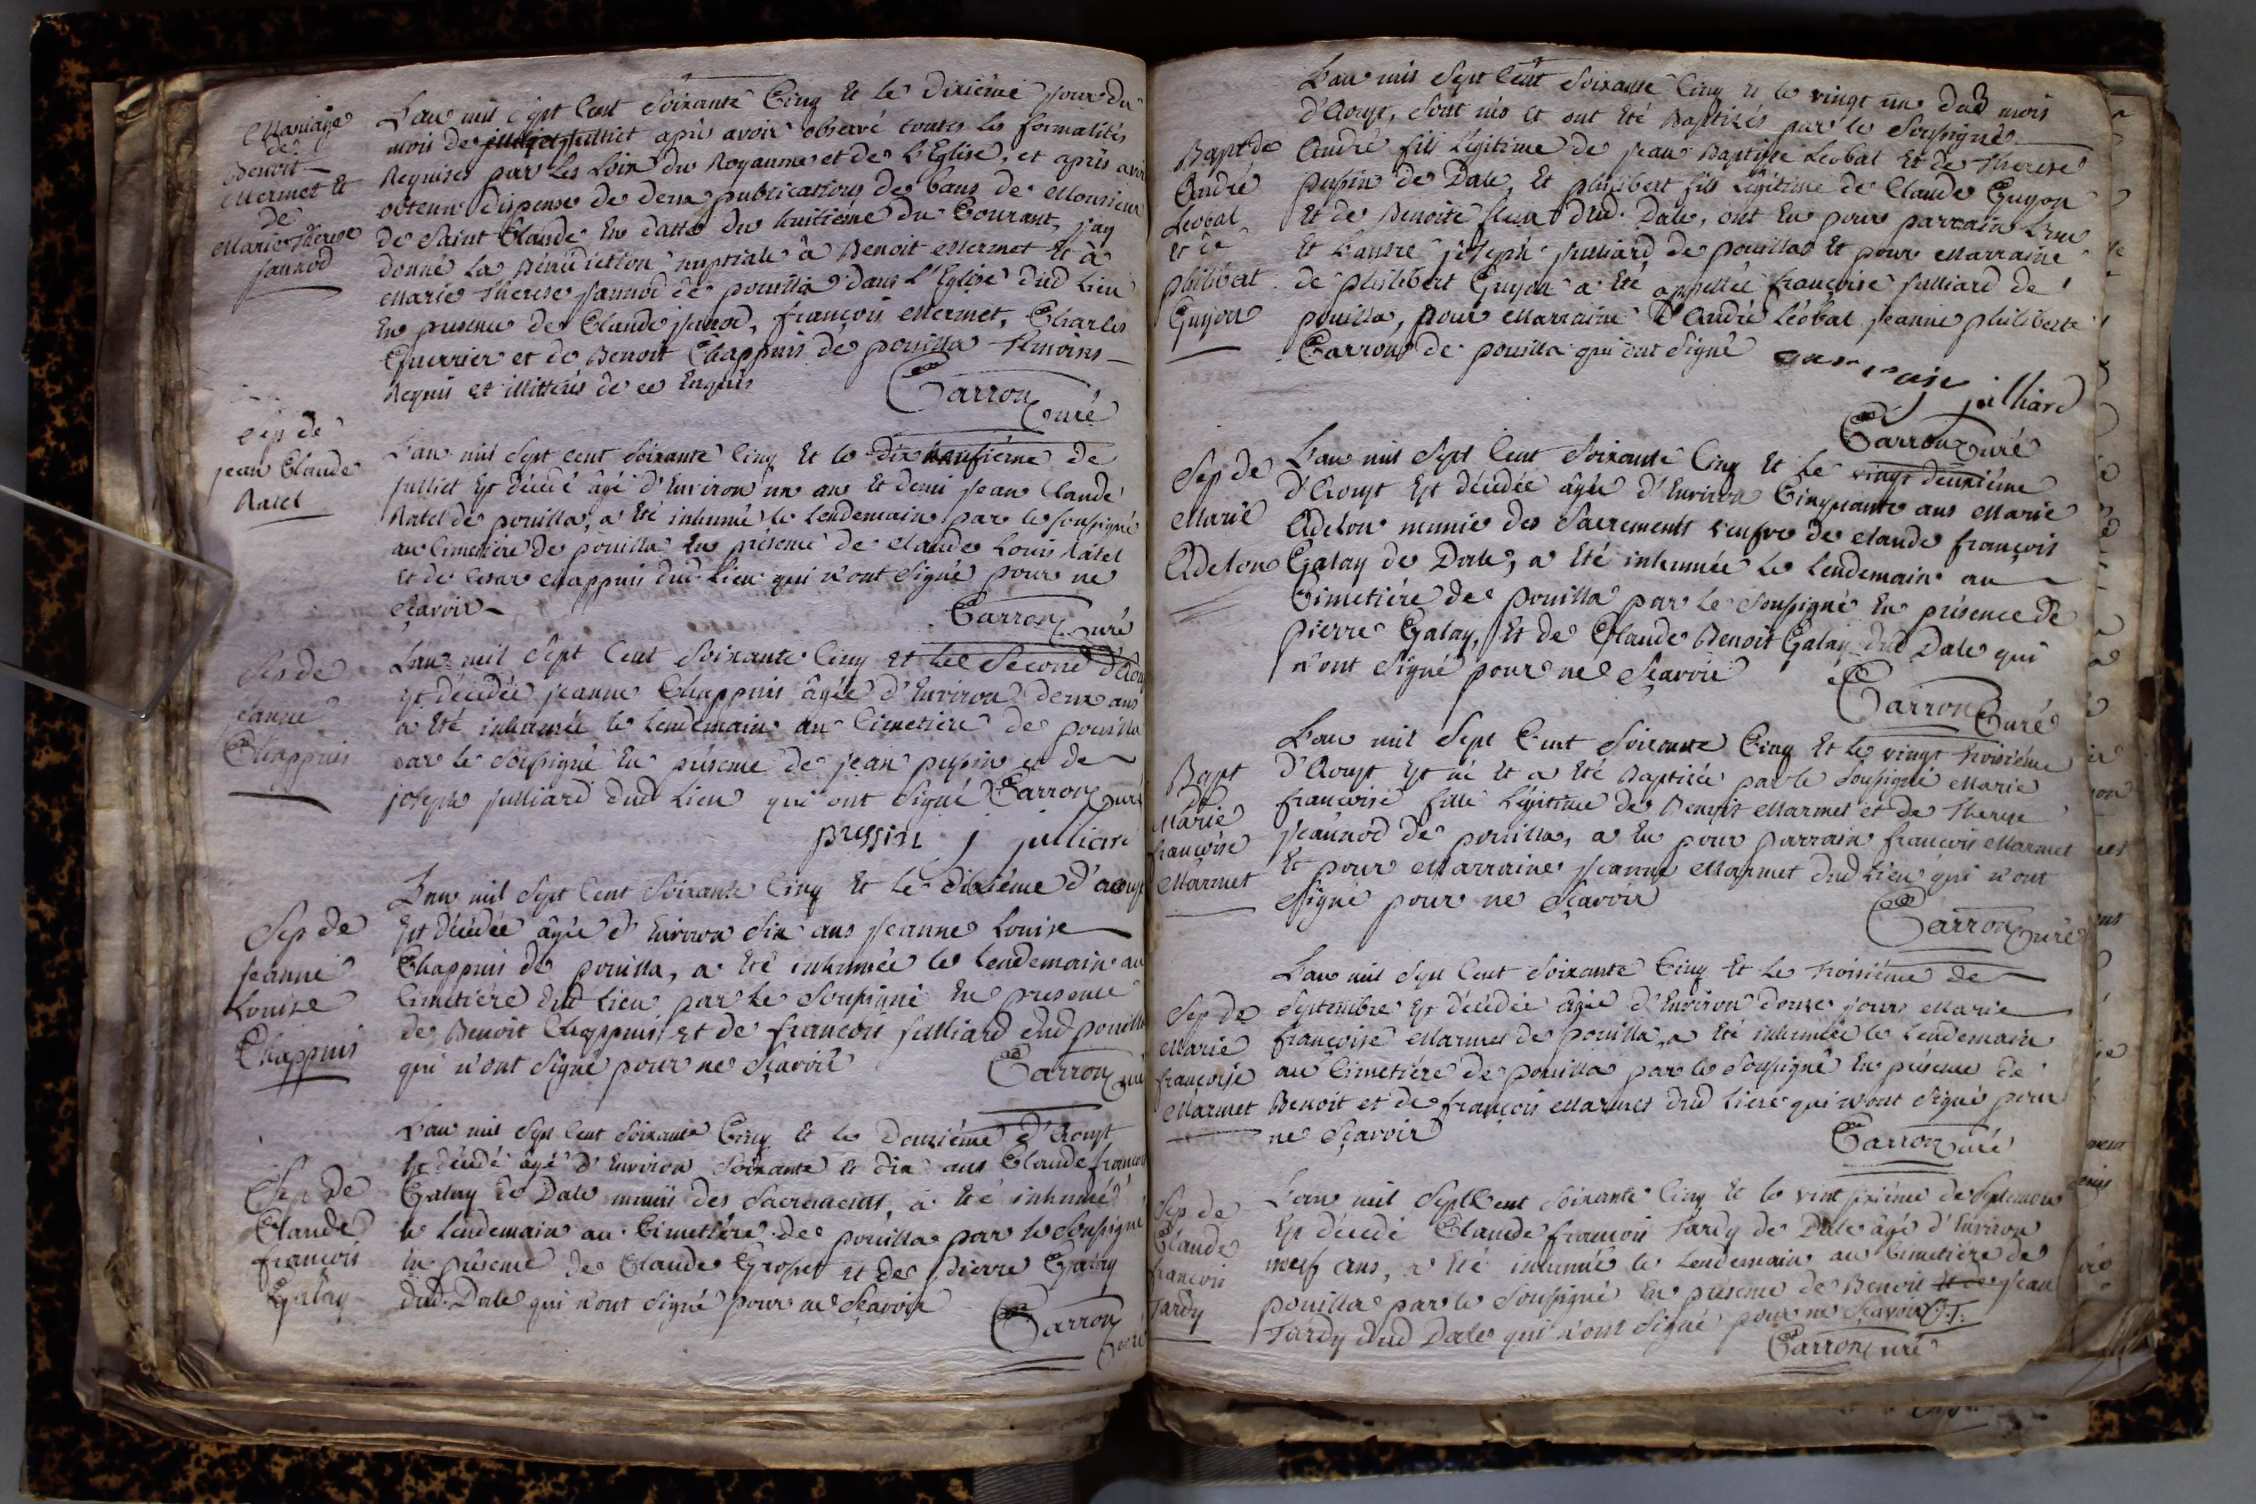 Mariage
de
Benoit
Mermet et
de
Marie Therese
Jannod
L'an mil sept cent soixante cinq et le dixiéme jour du
mois de juillet après avoir observé toutes les formalités
Requises par les Loix du Royaume et de L'Eglise, et après avoir
obtenu dispense de deux publications de bans de Monsieur
de Saint Claude en datte du huitiéme du Courant, j'ay
donné la Bénédiction nuptiale à Benoit Mermet et à
Marie Therese Jannod de pouilla dans L'Eglise dud Lieu
En presence de Claude Janod, françois Mermet, Charles
Cuerrier et de Benoit Chappuis de pouilla témoins
Requis et illittérés de ce Enquis
Carron
Curé
Sep de
jean Claude
Ratel
L'an mil sept cent soixante cinq et le dix neufiéme de
juillet est décédé âgé d'Environ un an et demi jean Claude
Ratel de pouilla, a Eté inhumé le lendemain par le soussigné
au Cimetière de pouilla En présence de claude Louis Ratel
et de Cesar chappuis dud. Lieu qui n'ont signé pour ne
sçavoir
Carron Curé
Sep de
jeanne
Chappuis
L'an mil sept cent soixante cinq et le second d'Aoust
Est décédée jeanne Chappuis âgée d'Environ deux ans
a Eté inhumée le lendemain au Cimetiere de pouilla
par le soussigné En présence de jean pussin et de
joseph julliard dud Lieu qui ont signé Carron Curé
pussin j julliard
Sep de
jeanne
Louise
Chappuis
L'an mil sept cent soixante cinq et le dixiéme d'aoust
Est décédée âgée d'Environ six ans jeanne Louise
Chappuis de pouilla, a Eté inhumée le lendemain au
Cimetiére dud Lieu par le soussigné En presence
de Benoit Chappuis et de françois julliard dud pouilla
qui n'ont signé pour ne sçavoir
Carron curé
Sep de
Claude
françois
Galay
L'an mil sept cent soixante cinq et le douziéme d'Aoust
Est décédé âgé d'Environ soixante et dix ans Claude françois
Galay de Dale muni des sacrements, a Eté inhumé
le lendemain au Cimetière de pouilla par le soussigné
En présence de Claude Grospu et de pierre Galay
dud. Dale qui n'ont signé pour ne sçavoir
Carron
curé
Bapt de
André
Léobal
et de
philibert
Guyon
L'an mil sept cent soixante cinq et le vingt un dud mois
d'Aoust, sont nés et ont Eté Baptisés par le soussigné
André fils légitime de jean Baptiste Léobal et de Therese
pussin de Dale, Et philibert fils légitime de Claude Guyon
Et de Benoite dud. Dale, ont Eu pour parrain L'un
Et L'autre joseph julliard de pouilla et pour Marraine
de philibert Guyon a Eté appellée françoise julliard de
pouilla, pour Marraine d'André Léobal jeanne philiberte
Carron de pouilla qui ont signé
julliard
Carron curé
Sep de
Marie
Adelon
L'an mil sept cent soixante cinq et le vingt deuxiéme
d'Aoust Est décédée âgée d'Environ Cinquante ans Marie
Adelon munie des sacrements veufve de claude françois
Galay de Dale, a Eté inhumée le lendemain au
Cimetiére de pouilla par le soussigné En présence de
pierre Galay, Et de Claude Benoit Galay dud Dale qui
n'ont signé pour ne sçavoir
Carron Curé
Bapt
de
Marie
françoise
Marmet
L'an mil sept cent soixante cinq et le vingt troisiéme
d'Aoust Est né et a Eté Baptisée par le soussigné Marie
françoise fille légitime de Benoit Marmet et de Therese
jeannod de pouilla, a Eu pour parrain françois Marmet
Et pour Marraine jeanne Marmet dud Lieu qui n'ont
signé pour ne sçavoir
Carron Curé
Sep de
Marie
françoise
Marmet
L'an mil sept cent soixante cinq et le troisiéme de
septembre Est décédée âgée d'Environ douze jours Marie
françoise Marmet de pouilla, a Eté inhumée le lendemain
au Cimetiére de pouilla par le soussigné En présence de
Benoit et de françois Marmet dud Lieu qui n'ont signé pour
ne sçavoir
Carron curé
Sep de
Claude
françois
Tardy
L'an mil sept Cent soixante cinq et le vint sixiéme de septembre
Est décédé Claude françois Tardy de Dale âgé d'Environ
neuf ans, a Eté inhumé le lendemain au Cimetiére de
pouilla par le soussigné En présence de Benoit et de jean
Tardy dud Dale qui n'ont signé pour ne sçavoir
Carron curé